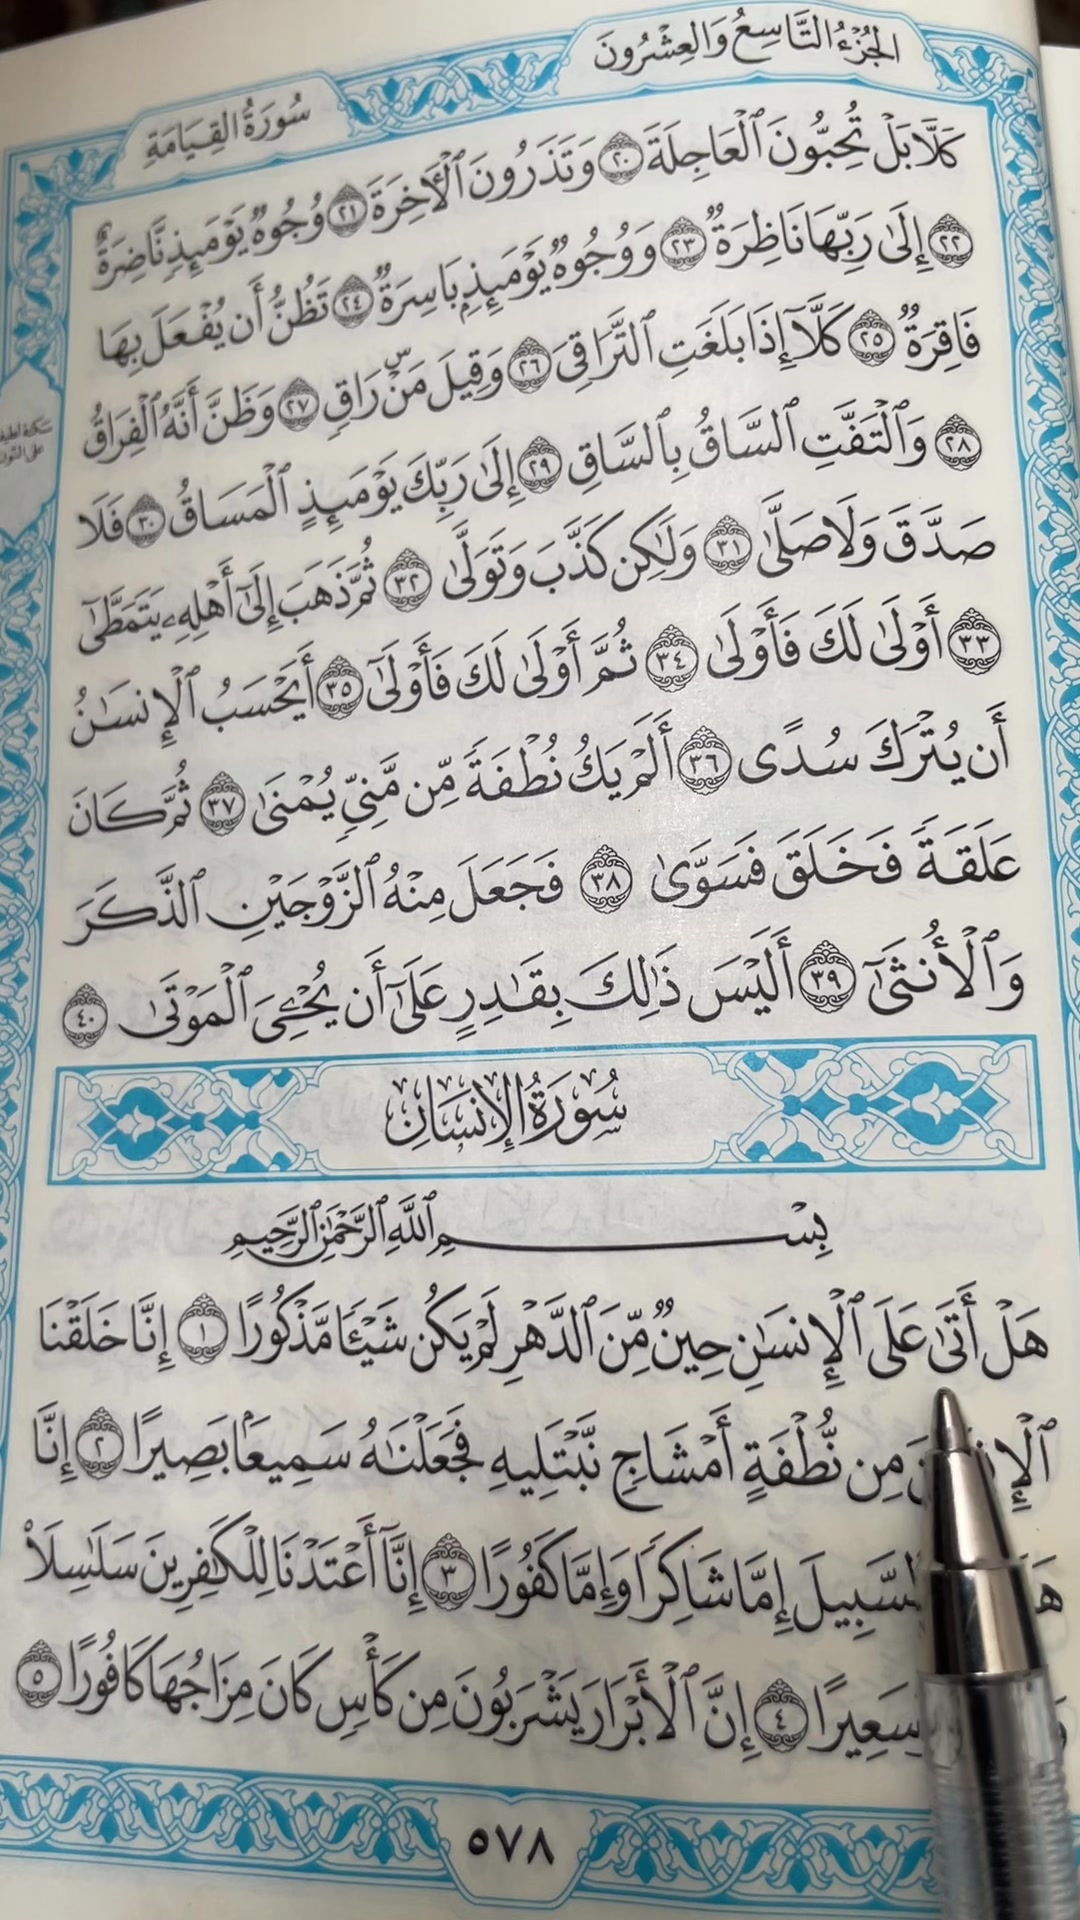 الجزء التاسع والعشرون
سورة القيامة
كَلَّا بَلْ تُحِبُّونَ ٱلْعَاجِلَةَ ٢٠ وَتَذَرُونَ ٱلْأٓخِرَةَ ٢١ وُجُوهٌ يَوْمَئِذٍ نَّاضِرَةٌ
٢٢ إِلَىٰ رَبِّهَا نَاظِرَةٌ ٢٣ وَوُجُوهٌ يَوْمَئِذٍۭ بَاسِرَةٌ ٢٤ تَظُنُّ أَن يُفْعَلَ بِهَا
فَاقِرَةٌ ٢٥ كَلَّآ إِذَا بَلَغَتِ ٱلتَّرَاقِىَ ٢٦ وَقِيلَ مَنْۜ رَاقٍ ٢٧ وَظَنَّ أَنَّهُ ٱلْفِرَاقُ
٢٨ وَٱلْتَفَّتِ ٱلسَّاقُ بِٱلسَّاقِ ٢٩ إِلَىٰ رَبِّكَ يَوْمَئِذٍ ٱلْمَسَاقُ ٣٠ فَلَا
صَدَّقَ وَلَا صَلَّىٰ ٣١ وَلَٰكِن كَذَّبَ وَتَوَلَّىٰ ٣٢ ثُمَّ ذَهَبَ إِلَىٰٓ أَهْلِهِۦ يَتَمَطَّىٰٓ
٣٣ أَوْلَىٰ لَكَ فَأَوْلَىٰ ٣٤ ثُمَّ أَوْلَىٰ لَكَ فَأَوْلَىٰٓ ٣٥ أَيَحْسَبُ ٱلْإِنسَٰنُ
أَن يُتْرَكَ سُدًى ٣٦ أَلَمْ يَكُ نُطْفَةً مِّن مَّنِىٍّ يُمْنَىٰ ٣٧ ثُمَّ كَانَ
عَلَقَةً فَخَلَقَ فَسَوَّىٰ ٣٨ فَجَعَلَ مِنْهُ ٱلزَّوْجَيْنِ ٱلذَّكَرَ
وَٱلْأُنثَىٰٓ ٣٩ أَلَيْسَ ذَٰلِكَ بِقَٰدِرٍ عَلَىٰٓ أَن يُحْـِۧىَ ٱلْمَوْتَىٰ ٤٠
سُورَةُ الإِنسَانِ
بِسْمِ ٱللَّهِ ٱلرَّحْمَٰنِ ٱلرَّحِيمِ
هَلْ أَتَىٰ عَلَى ٱلْإِنسَٰنِ حِينٌ مِّنَ ٱلدَّهْرِ لَمْ يَكُن شَيْـًٔا مَّذْكُورًا ١ إِنَّا خَلَقْنَا
مِن نُّطْفَةٍ أَمْشَاجٍ نَّبْتَلِيهِ فَجَعَلْنَٰهُ سَمِيعًۢا بَصِيرًا ٢ إِنَّا
ٱلسَّبِيلَ إِمَّا شَاكِرًا وَإِمَّا كَفُورًا ٣ إِنَّآ أَعْتَدْنَا لِلْكَٰفِرِينَ سَلَٰسِلَا۟
سَعِيرًا ٤ إِنَّ ٱلْأَبْرَارَ يَشْرَبُونَ مِن كَأْسٍ كَانَ مِزَاجُهَا كَافُورًا ٥
٥٧٨